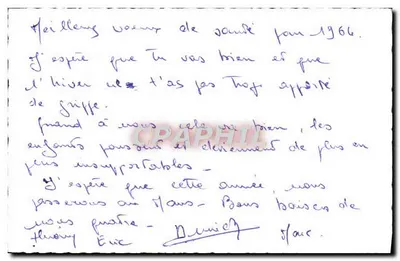 Meilleurs voeux de santé pour 1966.
J'espère que tu vas bien et que
l'hiver ne t'as pas trop apporté
de grippe.
Quand à nous cela va bien, les
enfants poussent et deviennent de plus en
plus insupportables -
J'espère que cette année, nous
passerons au Mans - Bons baisers de
nous quatre -
Thierry Eric Marc
CPAPHIL